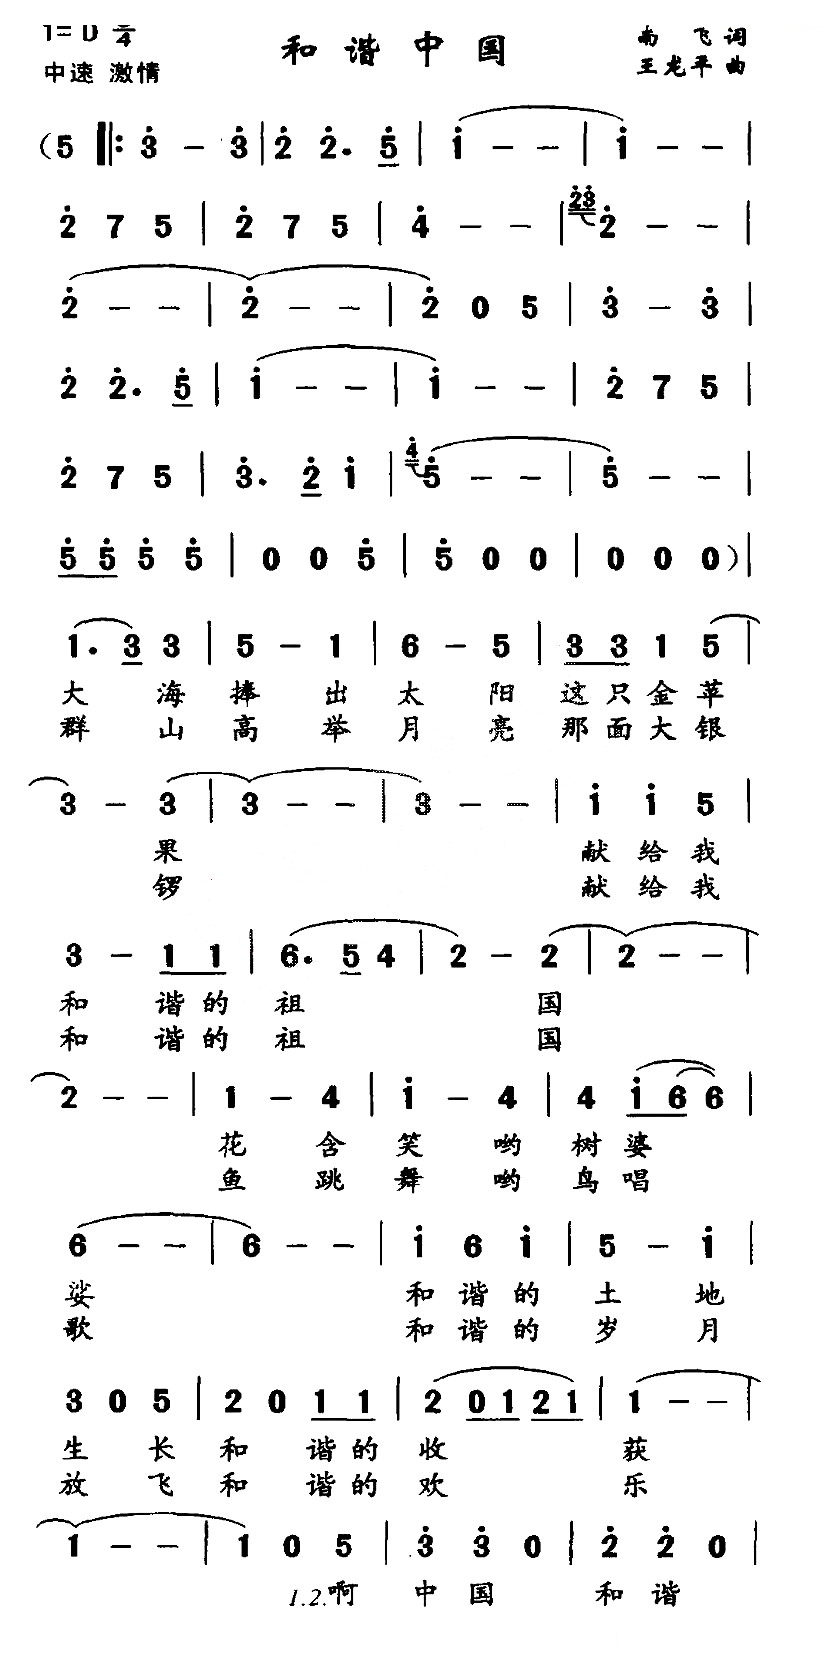 1=D 3/4
和谐中国
南飞词
中速 激情
王龙平曲
(5 ‖: 3̇ – 3̇ | 2̇ 2̇. 5̇ | 1̇ – – | 1̇ – – |
2̇ 7 5 | 2̇ 7 5 | 4̇ – – | 2̇3̇ 2̇ – – |
2̇ – – | 2̇ – – | 2̇ 0 5 | 3̇ – 3̇ |
2̇ 2̇. 5̇ | 1̇ – – | 1̇ – – | 2̇ 7 5 |
2̇ 7 5 | 3̇. 2̇ 1̇ | 4̇ 5̇ – – | 5̇ – – |
5̇ 5̇ 5̇ 5̇ | 0 0 5̇ | 5̇ 0 0 | 0 0 0) |
1. 3 3 | 5 – 1 | 6 – 5 | 3 3 1 5 |
大 海 捧 出 太 阳 这 只 金 苹
群 山 高 举 月 亮 那 面 大 银
3 – 3 | 3 – – | 3 – – | 1̇ 1̇ 5 |
果 献 给 我
锣 献 给 我
3 – 1 1 | 6. 5 4 | 2 – 2 | 2 – – |
和 谐 的 祖 国
和 谐 的 祖 国
2 – – | 1 – 4 | 1̇ – 4 | 4 1̇ 6 6 |
花 含 笑 哟 树 婆
鱼 跳 舞 哟 鸟 唱
6 – – | 6 – – | 1̇ 6 1̇ | 5 – 1̇ |
娑 和 谐 的 土 地
歌 和 谐 的 岁 月
3 0 5 | 2 0 1 1 | 2 0 1 2 1 | 1 – – |
生 长 和 谐 的 收 获
放 飞 和 谐 的 欢 乐
1 – – | 1 0 5 | 3̇ 3̇ 0 | 2̇ 2̇ 0 |
1.2.啊 中 国 和 谐